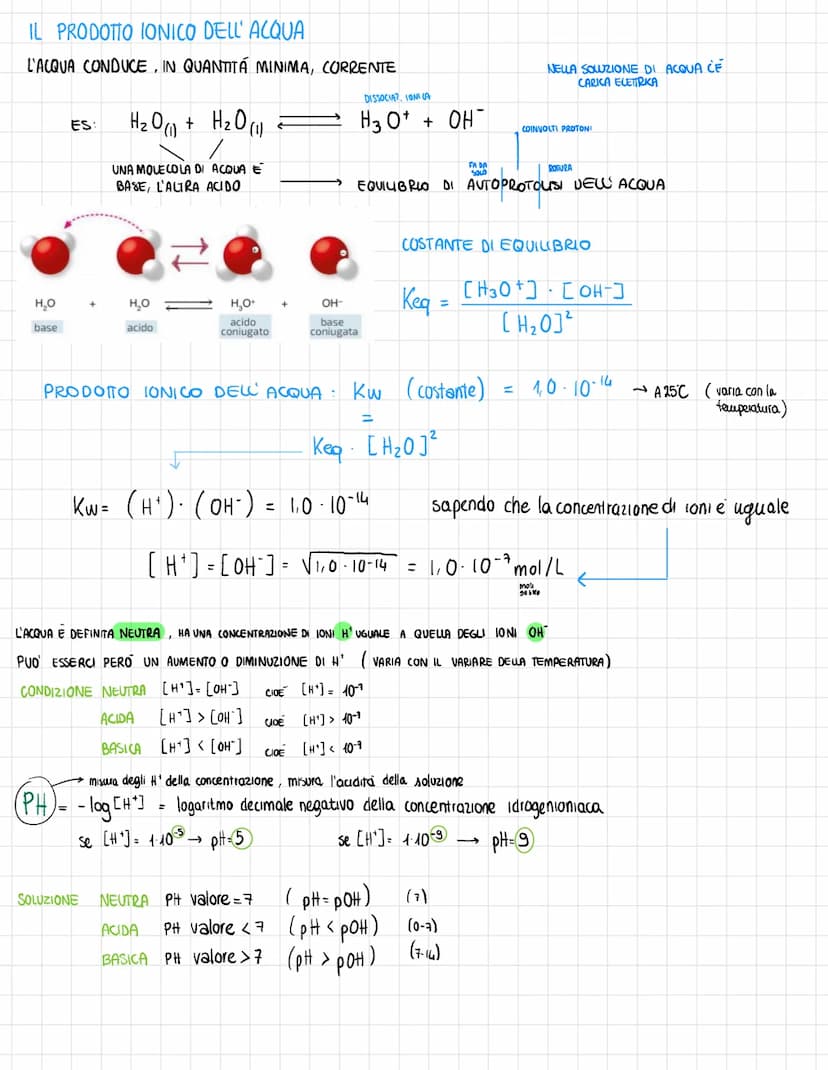 IL PRODOTTO IONICO DELL'ACQUA
L'ACQUA CONDUCE, IN QUANTITÁ MINIMA, CORRENTE
NELLA SOLUZIONE DI ACQUA C'È
CARICA ELETTRICA
DISSOCIAZ. IONICA
ES: H₂O(l) + H₂O(l) ⇌ H₃O⁺ + OH⁻
COINVOLTI PROTONI
UNA MOLECOLA DI ACQUA È
BASE, L'ALTRA ACIDO
FA DA
SOLO
ROTTURA
→ EQUILIBRIO DI AUTOPROTOLISI DELL'ACQUA
H₂O + H₂O ⇌ H₃O⁺ + OH⁻
base acido acido coniugato base coniugata
COSTANTE DI EQUILIBRIO
Keq = [H₃O⁺] · [OH⁻] / [H₂O]²
PRODOTTO IONICO DELL'ACQUA: Kw (costante) = 1,0 · 10⁻¹⁴ → A 25°C (varia con la
temperatura)
=
Keq · [H₂O]²
Kw = (H⁺) · (OH⁻) = 1,0 · 10⁻¹⁴
sapendo che la concentrazione di ioni è uguale
[H⁺] = [OH⁻] = √1,0 · 10⁻¹⁴ = 1,0 · 10⁻⁷ mol/L
L'ACQUA È DEFINITA NEUTRA, HA UNA CONCENTRAZIONE DI IONI H⁺ UGUALE A QUELLA DEGLI IONI OH⁻
PUO' ESSERCI PERO' UN AUMENTO O DIMINUZIONE DI H⁺ (VARIA CON IL VARIARE DELLA TEMPERATURA)
CONDIZIONE NEUTRA [H⁺] = [OH⁻] CIOÈ [H⁺] = 10⁻⁷
ACIDA [H⁺] > [OH⁻] CIOÈ [H⁺] > 10⁻⁷
BASICA [H⁺] < [OH⁻] CIOÈ [H⁺] < 10⁻⁷
→ misura degli H⁺ della concentrazione, misura l'acidità della soluzione
PH = -log[H⁺] = logaritmo decimale negativo della concentrazione idrogenionica
se [H⁺] = 1·10⁻⁵ → pH = 5 se [H⁺] = 1·10⁻⁹ → pH = 9
SOLUZIONE NEUTRA PH valore = 7 (pH = pOH) (7)
ACIDA PH valore < 7 (pH < pOH) (0-7)
BASICA PH valore > 7 (pH > pOH) (7-14)